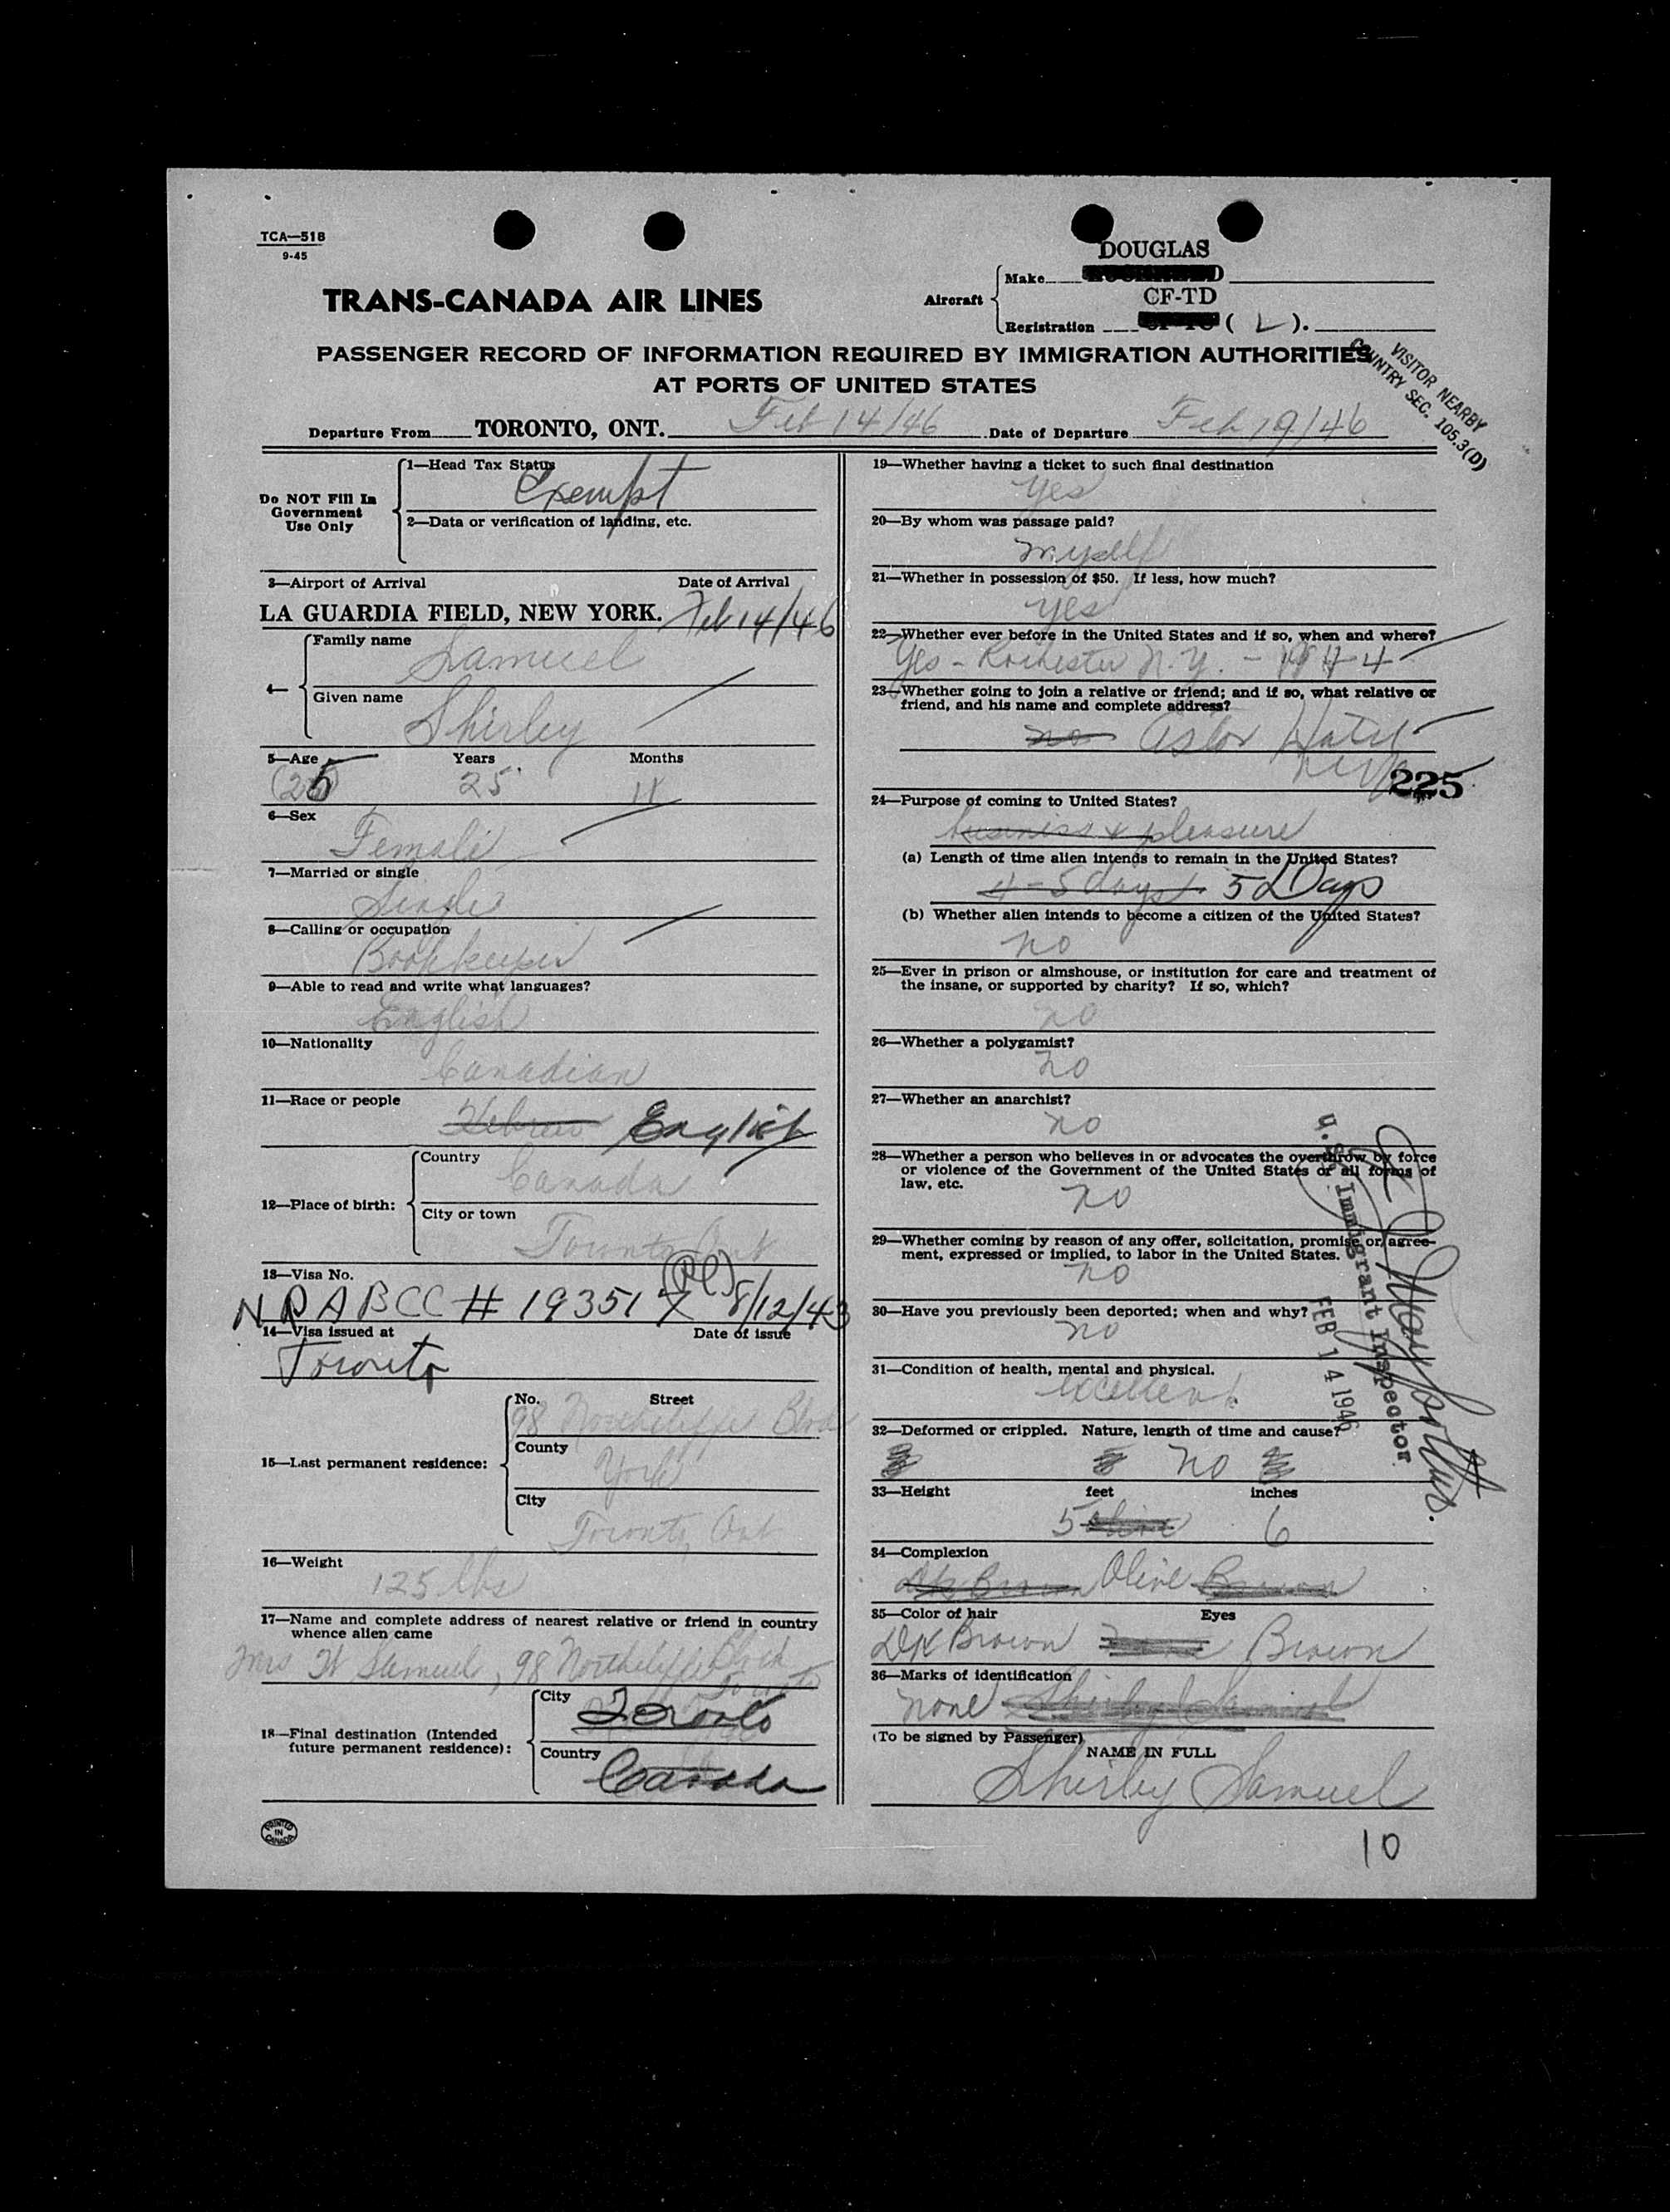 TCA—518
9-45
TRANS-CANADA AIR LINES
DOUGLAS
Aircraft
Make
CF-TD
Registration ( L ).
PASSENGER RECORD OF INFORMATION REQUIRED BY IMMIGRATION AUTHORITIES
AT PORTS OF UNITED STATES
VISITOR NEARBY
COUNTRY SEC. 105.3(D)
Departure From TORONTO, ONT. Feb 14/46 Date of Departure Feb 19/46
Do NOT Fill In
Government
Use Only
1—Head Tax Status
Exempt
2—Data or verification of landing, etc.
3—Airport of Arrival Date of Arrival
LA GUARDIA FIELD, NEW YORK. Feb 14/46
4—
Family name
Samuel
Given name
Shirley
5—Age Years Months
(25) 25 11
6—Sex
Female
7—Married or single
Single
8—Calling or occupation
Bookkeeper
9—Able to read and write what languages?
English
10—Nationality
Canadian
11—Race or people
Hebrew English
12—Place of birth:
Country
Canada
City or town
Toronto Ont
13—Visa No.
NRABCC # 193517 8/12/43
14—Visa issued at Date of issue
Toronto
15—Last permanent residence:
No. Street
98 Northcliffe Blvd
County
York
City
Toronto, Ont
16—Weight
125 lbs
17—Name and complete address of nearest relative or friend in country
whence alien came
Mrs H Samuel, 98 Northcliffe Blvd
Toronto
18—Final destination (Intended
future permanent residence):
City
Toronto
Country
Canada
PRINTED
IN
CANADA
19—Whether having a ticket to such final destination
Yes
20—By whom was passage paid?
myself
21—Whether in possession of $50. If less, how much?
yes
22—Whether ever before in the United States and if so, when and where?
Yes - Rochester N.Y. - 1944
23—Whether going to join a relative or friend; and if so, what relative or
friend, and his name and complete address?
no Astor Hotel
NYC
225
24—Purpose of coming to United States?
business & pleasure
(a) Length of time alien intends to remain in the United States?
4-5 days 5 Days
(b) Whether alien intends to become a citizen of the United States?
no
25—Ever in prison or almshouse, or institution for care and treatment of
the insane, or supported by charity? If so, which?
no
26—Whether a polygamist?
no
27—Whether an anarchist?
no
28—Whether a person who believes in or advocates the overthrow by force
or violence of the Government of the United States or all forms of
law, etc.
no
29—Whether coming by reason of any offer, solicitation, promise or agree-
ment, expressed or implied, to labor in the United States.
no
30—Have you previously been deported; when and why?
no
U.S. Immigrant Inspector
FEB 14 1946
31—Condition of health, mental and physical.
excellent
32—Deformed or crippled. Nature, length of time and cause?
no
33—Height feet inches
5 6
34—Complexion
Dk Brown Olive Brown
35—Color of hair Eyes
DK Brown Brown
36—Marks of identification
none Shirley Samuel
(To be signed by Passenger)
NAME IN FULL
Shirley Samuel
10